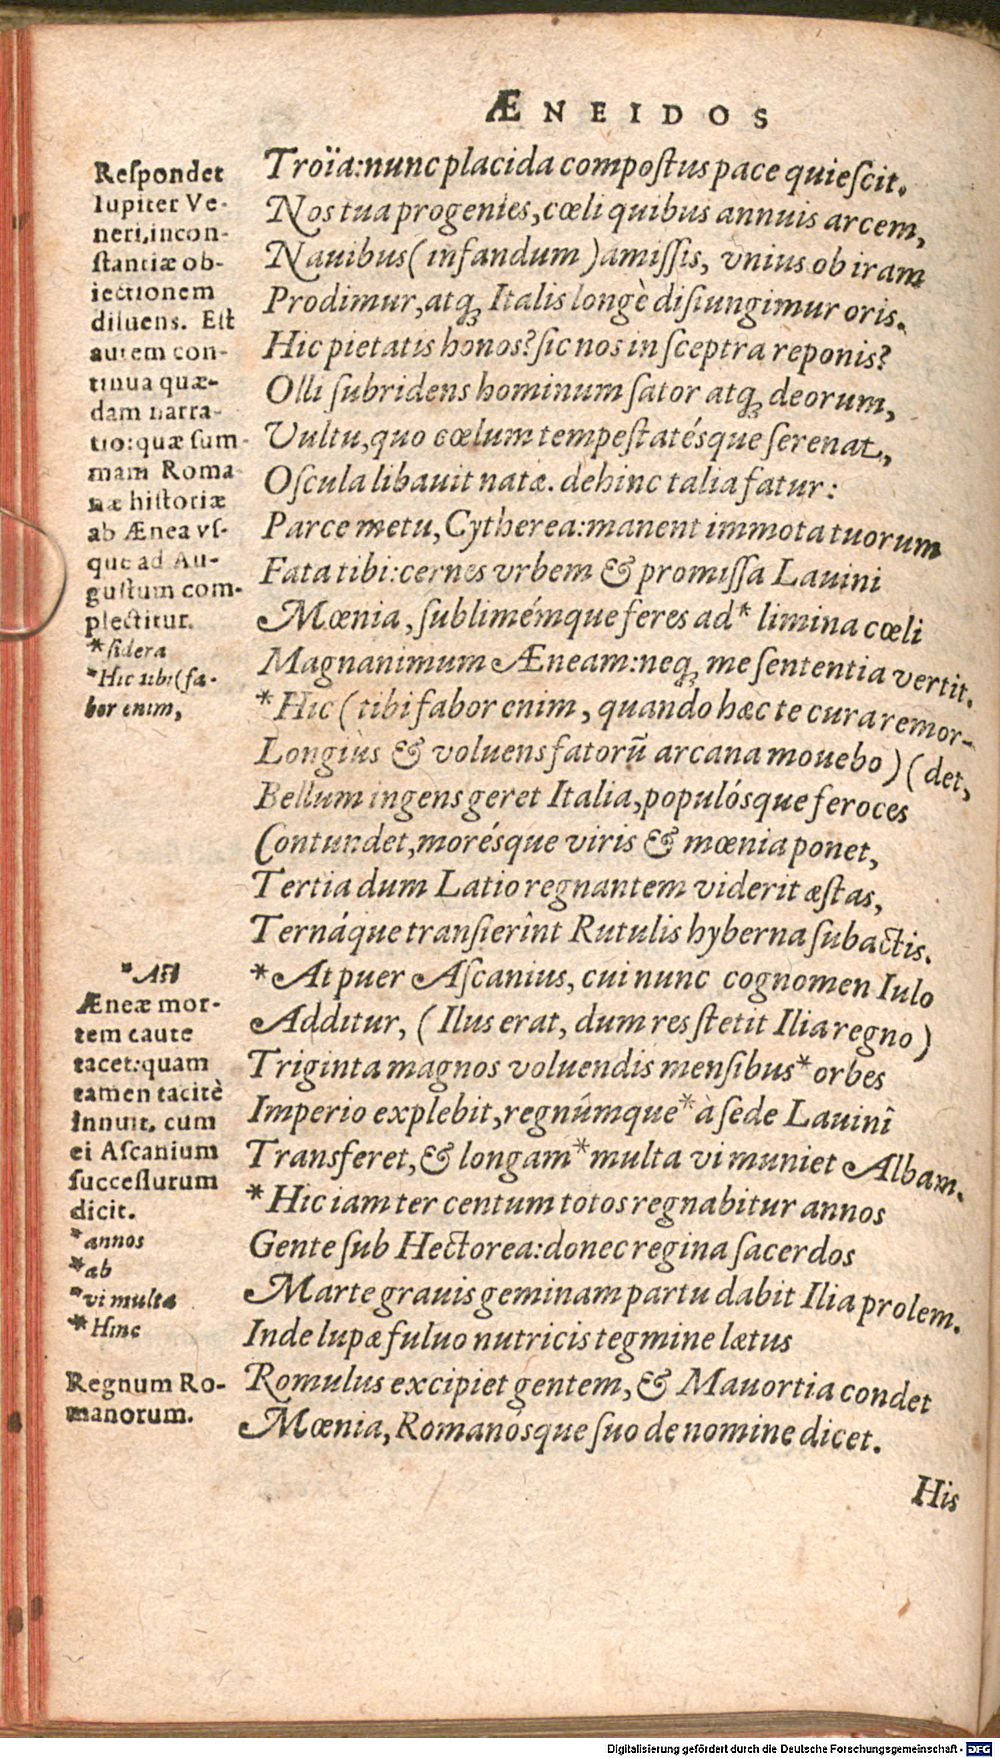 ÆNEIDOS
Troïa:nunc placida compoſtus pace quieſcit.
Nos tua progenies, cœli quibus annuis arcem,
Nauibus (infandum) amiſſis, vnius ob iram
Prodimur, atq; Italis longè diſiungimur oris.
Hic pietatis honos? ſic nos in ſceptra reponis?
Olli ſubridens hominum ſator atq; deorum,
Vultu, quo cœlum tempeſtatésque ſerenat,
Oſcula libauit natæ. dehinc talia fatur:
Parce metu, Cytherea: manent immota tuorum
Fata tibi: cernes vrbem & promiſſa Lauini
Mœnia, ſublimémque feres ad* limina cœli
Magnanimum Æneam: neq; me ſententia vertit.
*Hic (tibi fabor enim, quando hæc te cura remor-
Longiùs & voluens fatorũ arcana mouebo) (det,
Bellum ingens geret Italia, populósque feroces
Contundet, morésque viris & mœnia ponet,
Tertia dum Latio regnantem viderit æſtas,
Ternáque tranſierînt Rutulis hyberna ſubactis.
*At puer Aſcanius, cui nunc cognomen Iulo
Additur, (Ilus erat, dum res ſtetit Ilia regno)
Triginta magnos voluendis menſibus* orbes
Imperio explebit, regnúmque* à ſede Lauinî
Transferet, & longam* multa vi muniet Albam.
*Hic iam ter centum totos regnabitur annos
Gente ſub Hectorea: donec regina ſacerdos
Marte grauis geminam partu dabit Ilia prolem.
Inde lupæ fuluo nutricis tegmine lætus
Romulus excipiet gentem, & Mauortia condet
Mœnia, Romanósque ſuo de nomine dicet.
His
Reſpondet
Iupiter Ve-
neri, incon-
ſtantiæ ob-
iectionem
diluens. Eſt
autem con-
tinua quæ-
dam narra-
tio: quæ ſum-
mam Roma-
næ hiſtoriæ
ab Ænea vſ-
que ad Au-
guſtum com-
plectitur.
*ſidera
*Hic tibi (fa-
bor enim,
*Aſt
Æneæ mor-
tem caute
tacet: quam
tamen tacitè
innuit, cum
ei Aſcanium
ſucceſſurum
dicit.
*annos
*ab
*vi multa
*Hinc
Regnum Ro-
manorum.
Digitalisierung gefördert durch die Deutsche Forschungsgemeinschaft - DFG